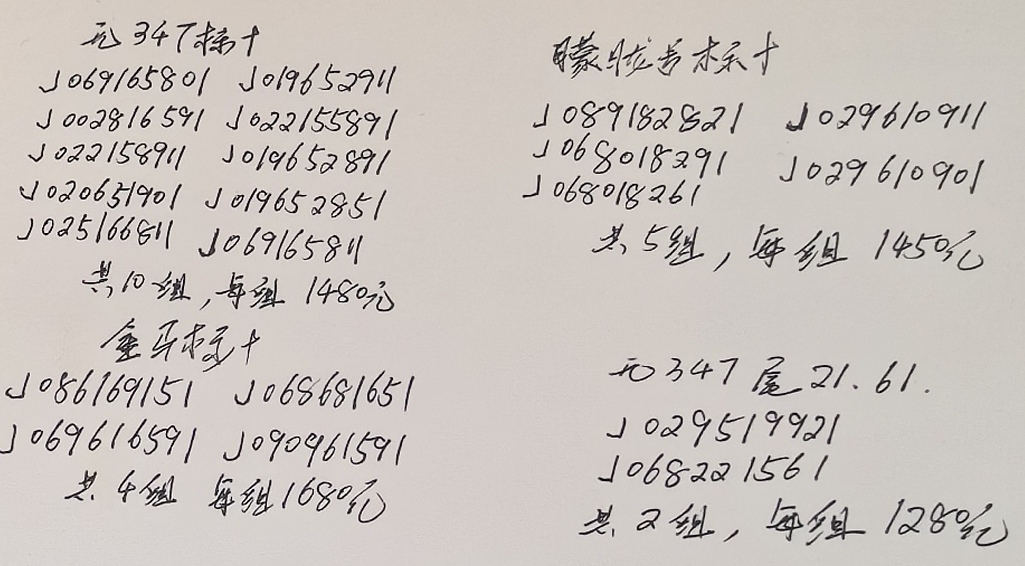 无347标十
J069165801 J019652911
J002816591 J022155891
J022158911 J019652891
J020651901 J019652851
J025166811 J069165811
共10组,每组1480元
金马标十
J086169151 J068681651
J069616591 J090961591
共4组 每组1680元
朦胧号标十
J089182821 J029610911
J068018291 J029610901
J068018261
共5组,每组1450元
无347尾21.61.
J029519921
J068221561
共2组,每组1280元